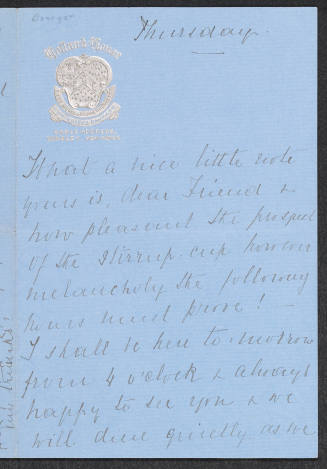 Thursday.
Holland House
What a nice little note
yours is, dear Friend &
how pleasant the prospect
of the Stirrup-cup however
melancholy the following
hours must prove! —
I shall be here to-morrow
from 4 o'clock & always
happy to see you & we
will dine quietly as we